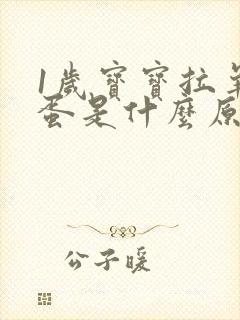 1歲寶寶拉羊
蛋是什麼原
公子暖